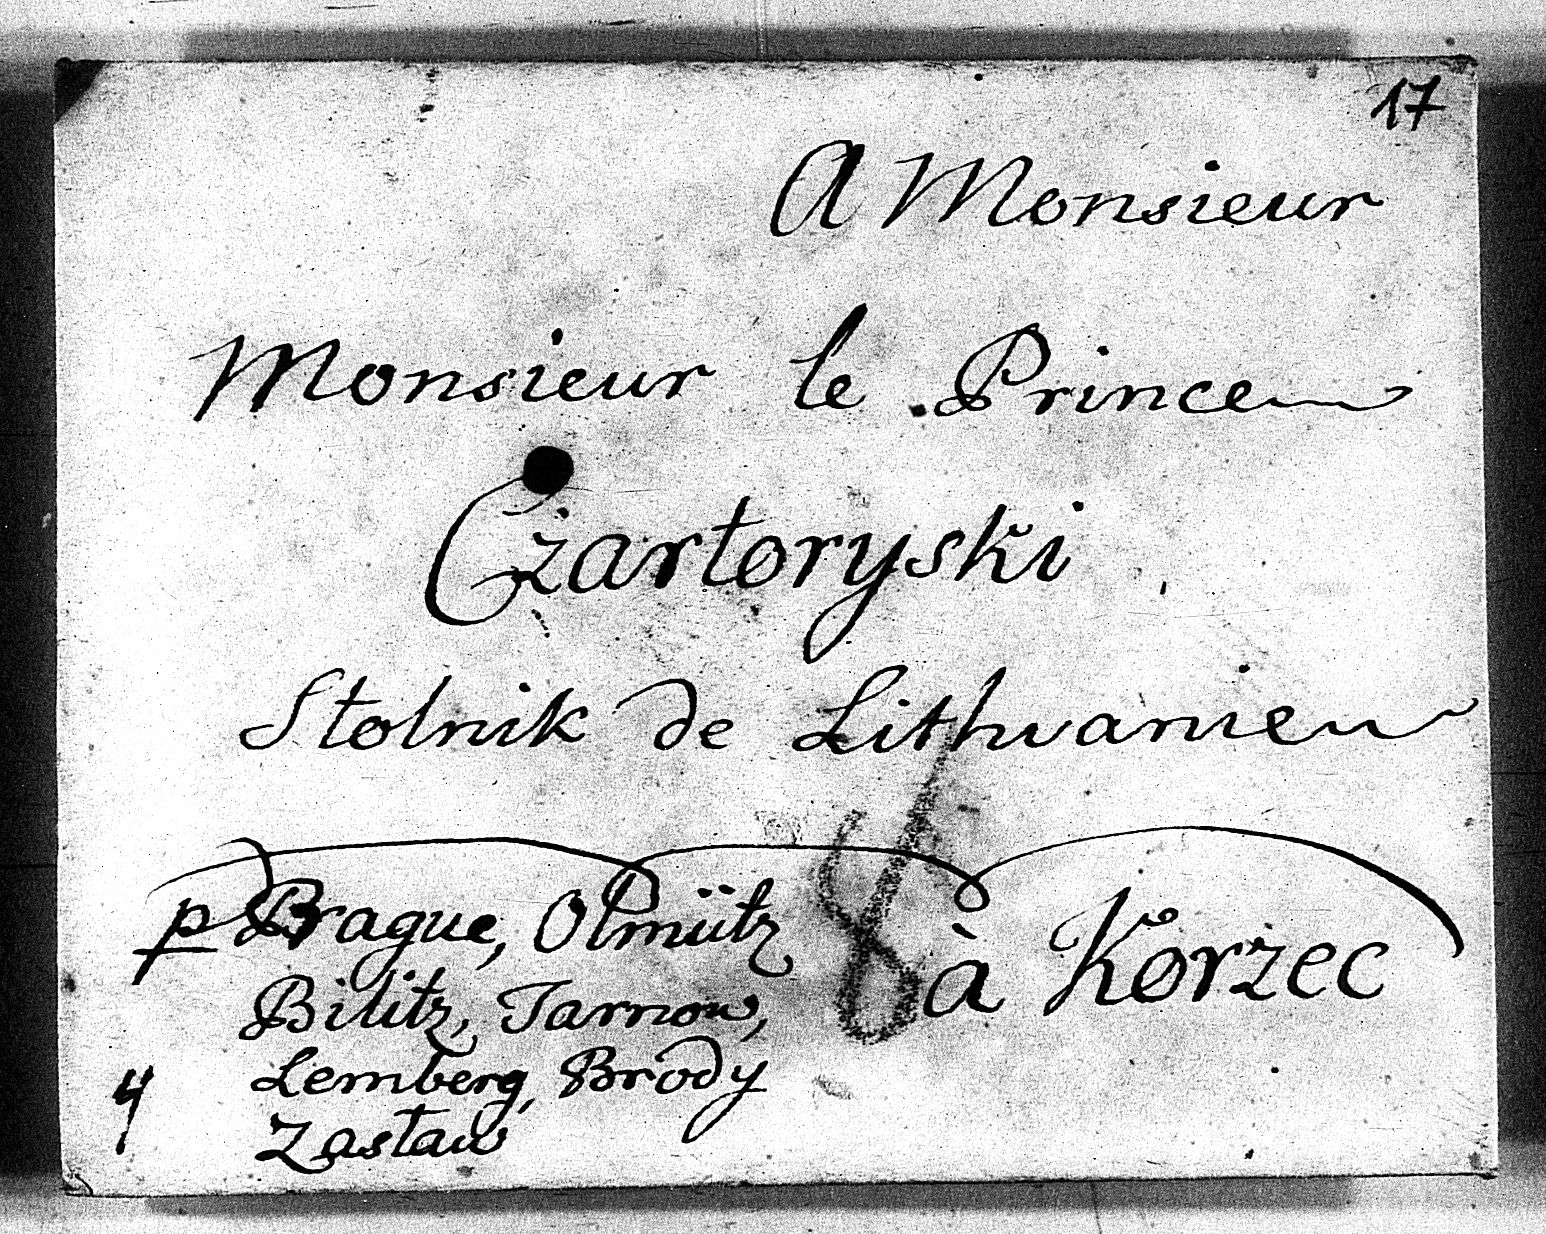 17
A Monsieur
Monsieur le Prince
Czartoryski
Stolnik de Lithuanie
à Korzec
p Prague, Olmütz
Bilitz, Tarnow,
Lemberg, Brody
Zaslaw
4